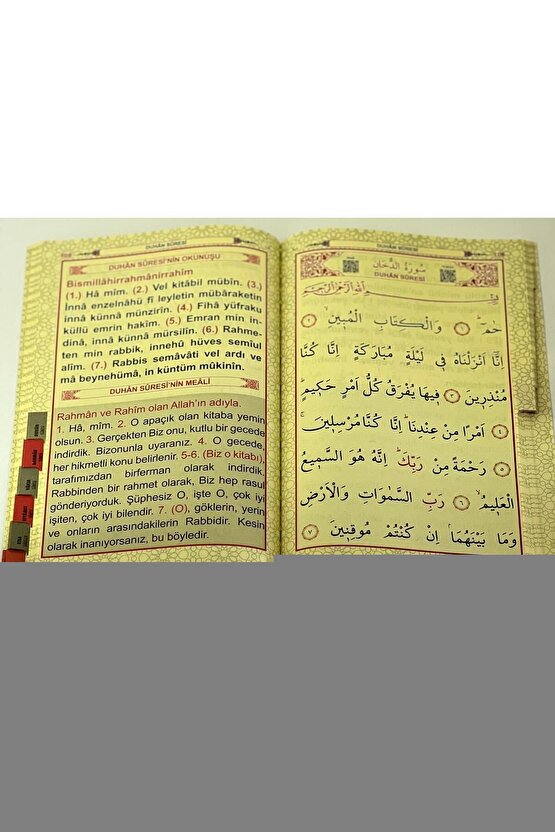 DUHÂN SÛRESİ
DUHÂN SÛRESİ'NİN OKUNUŞU
Bismillâhirrahmânirrahîm
(1.) Hâ mîm. (2.) Vel kitâbil mübîn. (3.)
İnnâ enzelnâhü fî leyletin mübâraketin
innâ künnâ münzirîn. (4.) Fîhâ yüfraku
küllü emrin hakîm. (5.) Emran min in-
dinâ, innâ künnâ mürsilîn. (6.) Rahme-
ten min rabbik, innehû hüves semîul
alîm. (7.) Rabbis semâvâti vel ardı ve
mâ beynehümâ, in küntüm mûkinîn.
DUHÂN SÛRESİ'NİN MEÂLİ
Rahmân ve Rahîm olan Allah'ın adıyla.
1. Hâ, mîm. 2. O apaçık olan kitaba yemin
olsun. 3. Gerçekten Biz onu, kutlu bir gecede
indirdik. Bizonunla uyaranız. 4. O gecede,
her hikmetli konu belirlenir. 5-6. (Biz o kitabı),
tarafımızdan birferman olarak indirdik.
Rabbinden bir rahmet olarak, Biz hep rasul
gönderiyorduk. Şüphesiz O, işte O, çok iyi
işiten, çok iyi bilendir. 7. (O), göklerin, yerin
ve onların arasındakilerin Rabbidir. Kesin
olarak inanıyorsanız, bu böyledir.
DUHÂN SÛRESİ
سُورَةُ الدُّخَانِ
DUHÂN SÛRESİ
بِسْمِ اللّٰهِ الرَّحْمٰنِ الرَّحِيمِ
حٰمٓ ﴿١﴾ وَالْكِتَابِ الْمُبِينِ ﴿٢﴾
اِنَّٓا اَنْزَلْنَاهُ فِي لَيْلَةٍ مُبَارَكَةٍ اِنَّا كُنَّا
مُنْذِرِينَ ﴿٣﴾ فِيهَا يُفْرَقُ كُلُّ اَمْرٍ حَكِيمٍ
﴿٤﴾ اَمْرًا مِنْ عِنْدِنَا اِنَّا كُنَّا مُرْسِلِينَ
﴿٥﴾ رَحْمَةً مِنْ رَبِّكَ اِنَّهُ هُوَ السَّمِيعُ
الْعَلِيمُ ﴿٦﴾ رَبِّ السَّمٰوَاتِ وَالْاَرْضِ
وَمَا بَيْنَهُمَا اِنْ كُنْتُمْ مُوقِنِينَ ﴿٧﴾